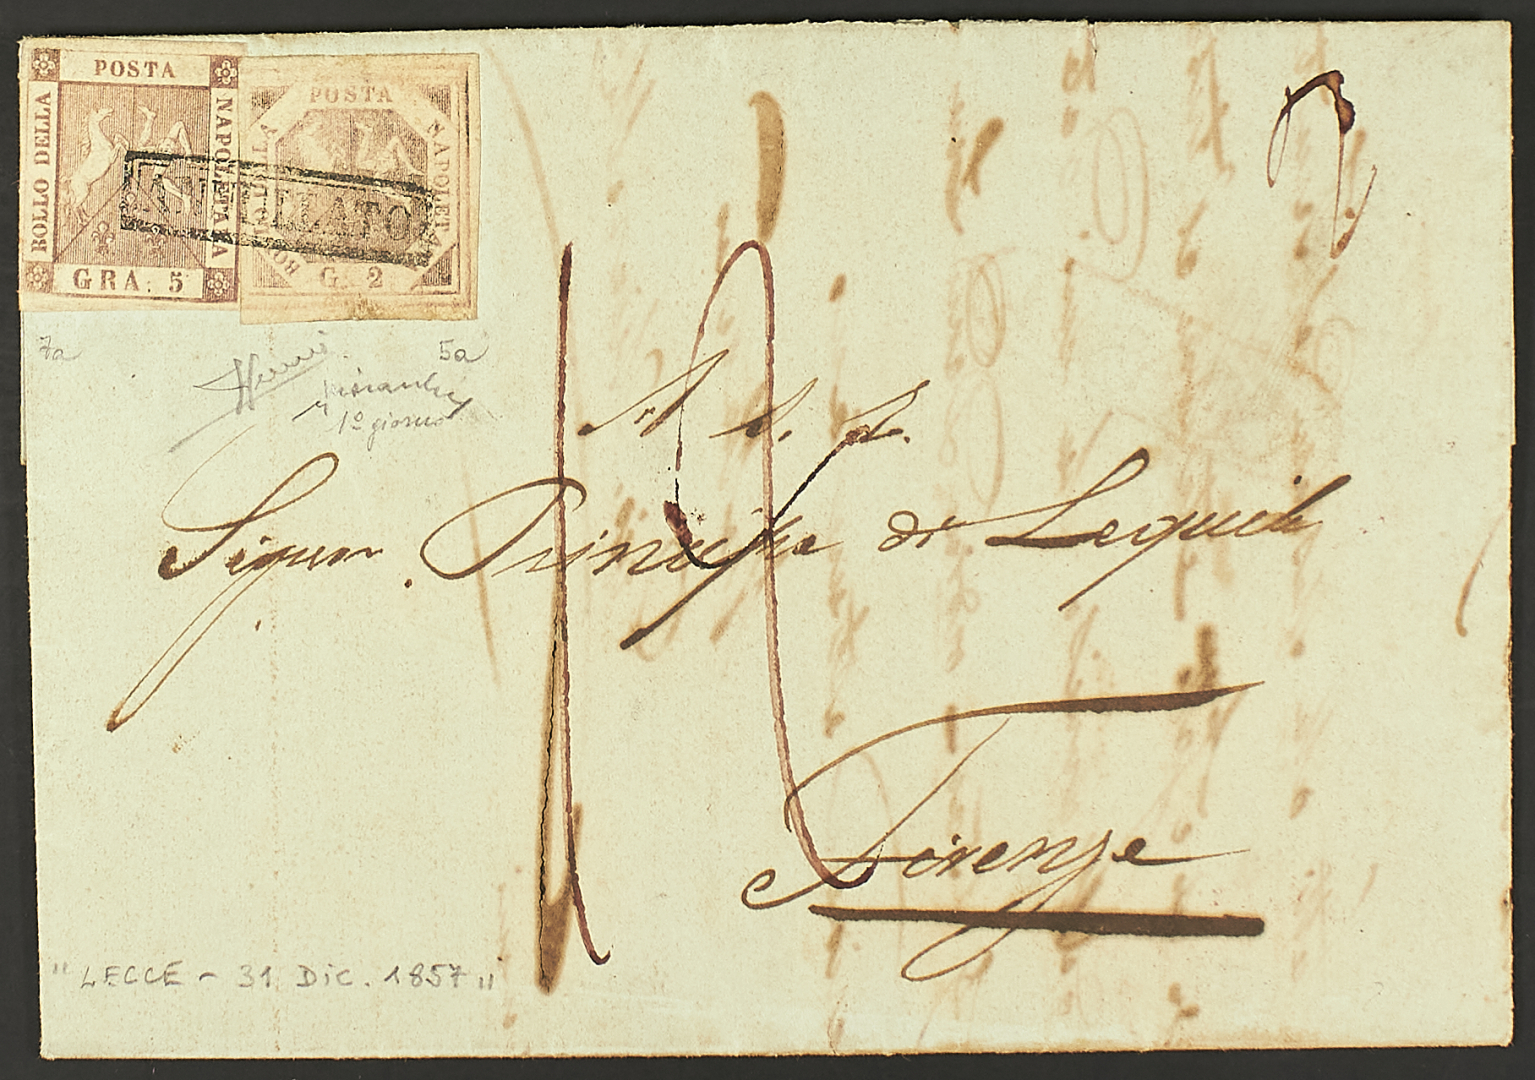 POSTA
NAPOLETANA
BOLLO DELLA
GRA. 5
POSTA
NAPOLETANA
BOLLO DELLA
G. 2
ANNULLATO
7a
5a
1º giorno
A S. E.
Signor Principe di Lequile
Firenze
"LECCE - 31 DIC. 1857"